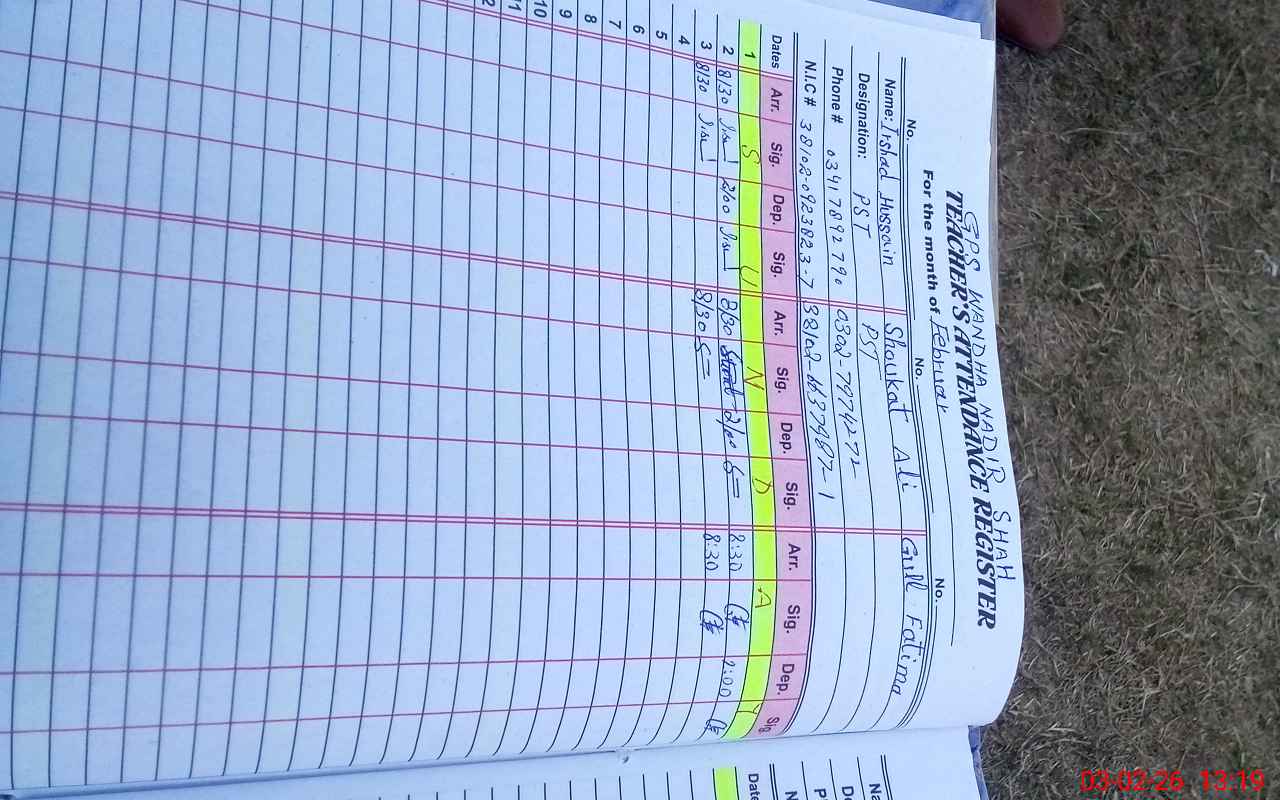 GPS WANDHA NADIR SHAH
TEACHER'S ATTENDANCE REGISTER
For the month of Februar
No. No. No.
Name: Irshad Hussain Shoukat Ali Gull Fatima
Designation: PST PST
Phone # 03417892790 0302-7974272
N.I.C # 38102-0923823-7 38102-6637987-1
Dates Arr. Sig. Dep. Sig. Arr. Sig. Dep. Sig. Arr. Sig. Dep. Sig
1 S U N D A Y
2 8/30 2/00 8/30 2/00 8:30 2:00
3 8/30 8/30 8:30
4
5
6
7
8
9
10
11
12
Na
De
P
N
Date
03-02-26 13:19